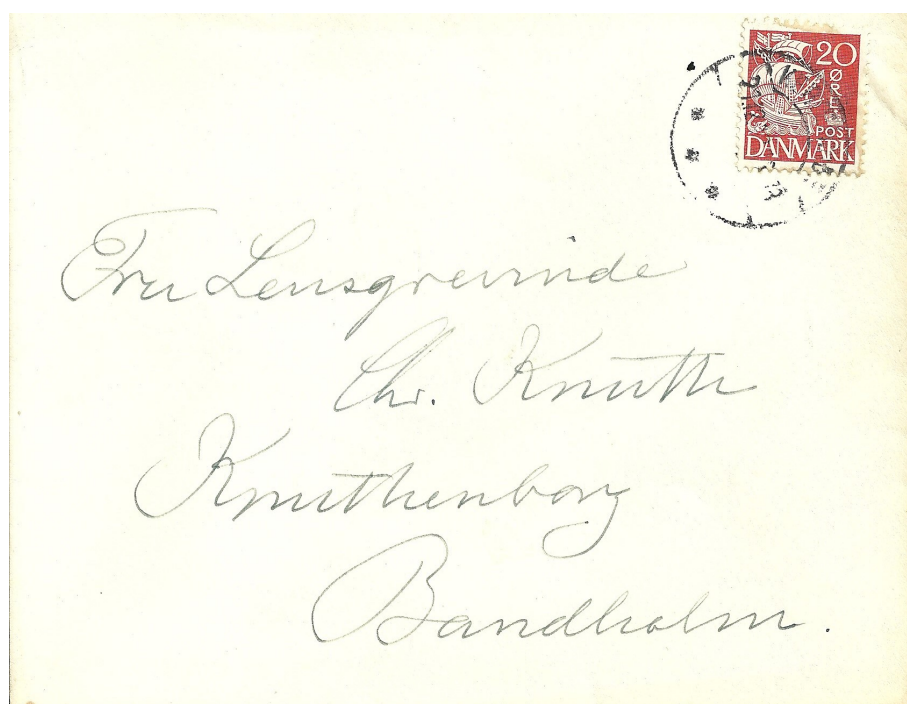 20
ØRE
POST
DANMARK
Fru Lensgrevinde
Chr. Knuth
Knuthenborg
Bandholm.